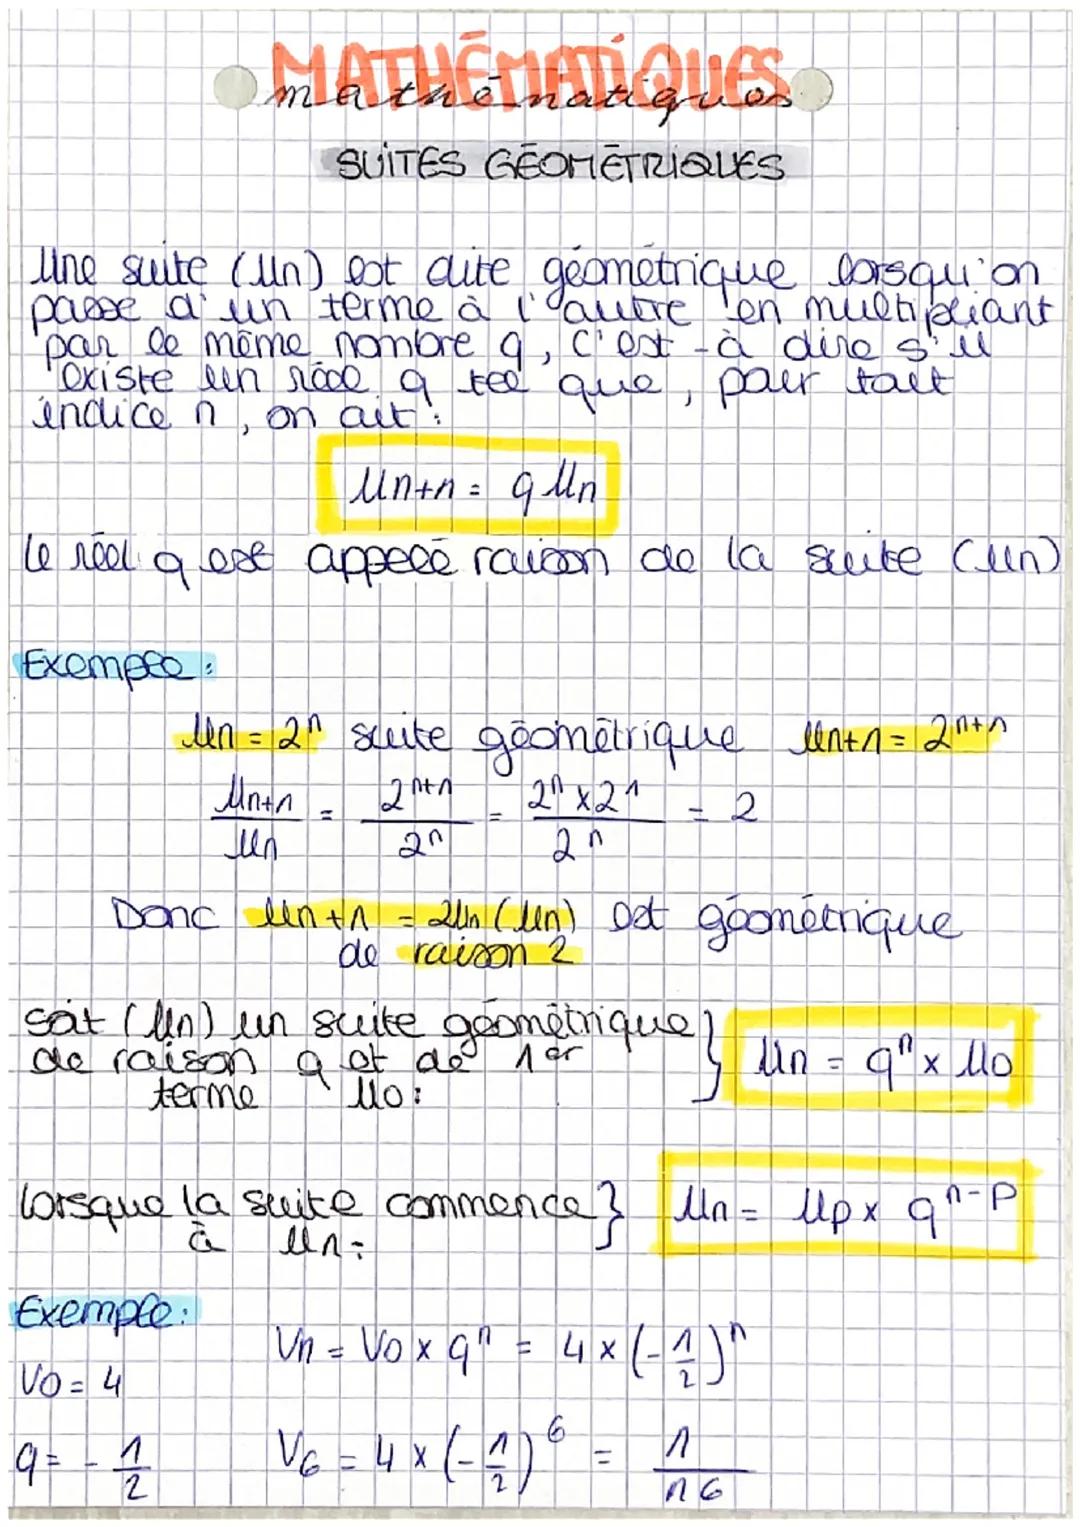 MATHÉMATIQUES
mathématiques
SUITES GÉOMÉTRIQUES
Une suite (Un) est dite géométrique lorsqu'on
passe d'un terme à l'autre en multipliant
par le même nombre q, c'est-à dire s'il
existe un réel q tel que, pour tout
indice n, on ait :
Un+1 = q Un
le réel q est appelé raison de la suite (Un)
Exemple :
Un = 2^n suite géométrique Un+1 = 2^n+1
Un+1/Un = 2^n+1/2^n = 2^n x 2^1/2^n = 2
Donc Un+1 = 2Un (Un) est géométrique
de raison 2
Soit (Un) un suite géométrique
de raison q et de 1er
terme U0 :
} Un = q^n x U0
lorsque la suite commence }
à Un :
Un = Up x q^n-p
Exemple :
Vn = V0 x q^n = 4 x (-1/2)^n
V0 = 4
q = -1/2
V6 = 4 x (-1/2)^6 = 1/16